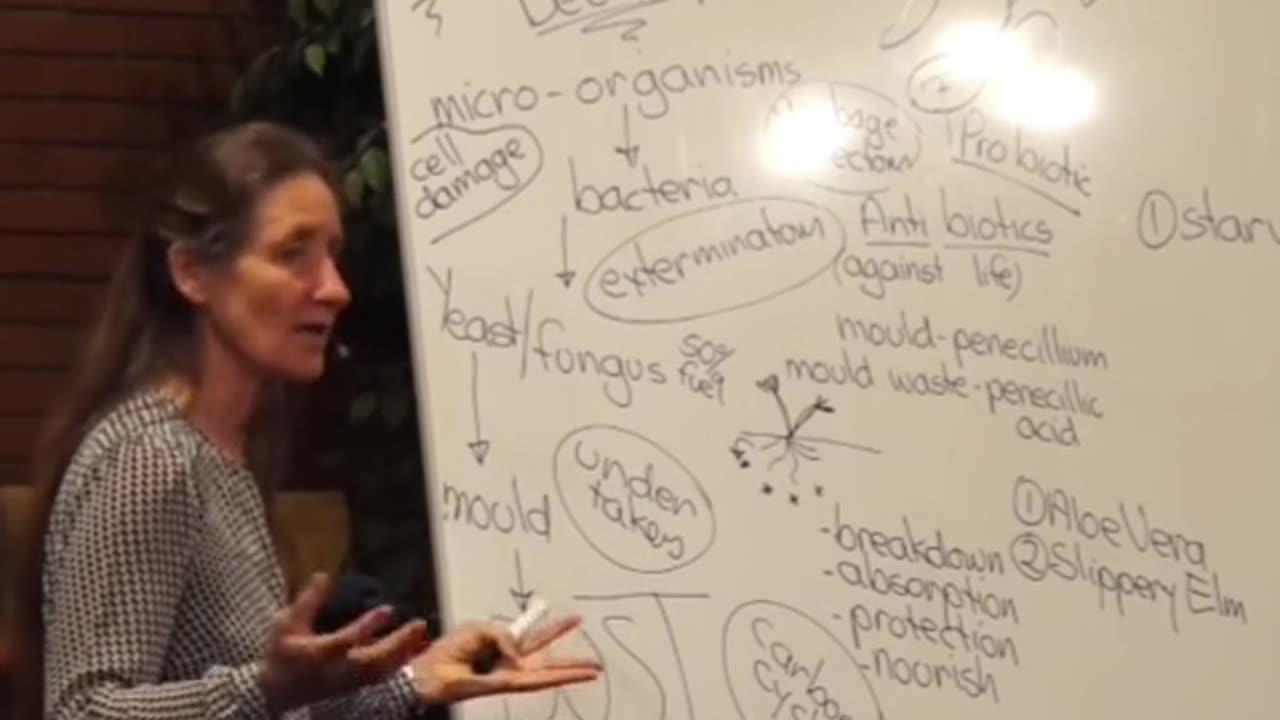 micro-organisms
cell
damage
bacteria
exterminatown
Probiotic
Anti biotics
(against life)
① starv
Yeast/fungus
50%
fuel
mould-penecillium
mould waste-penecillic
acid
mould
under
takey
-breakdown
-absorption
-protection
-nourish
① Aloe Vera
② Slippery Elm
DUST